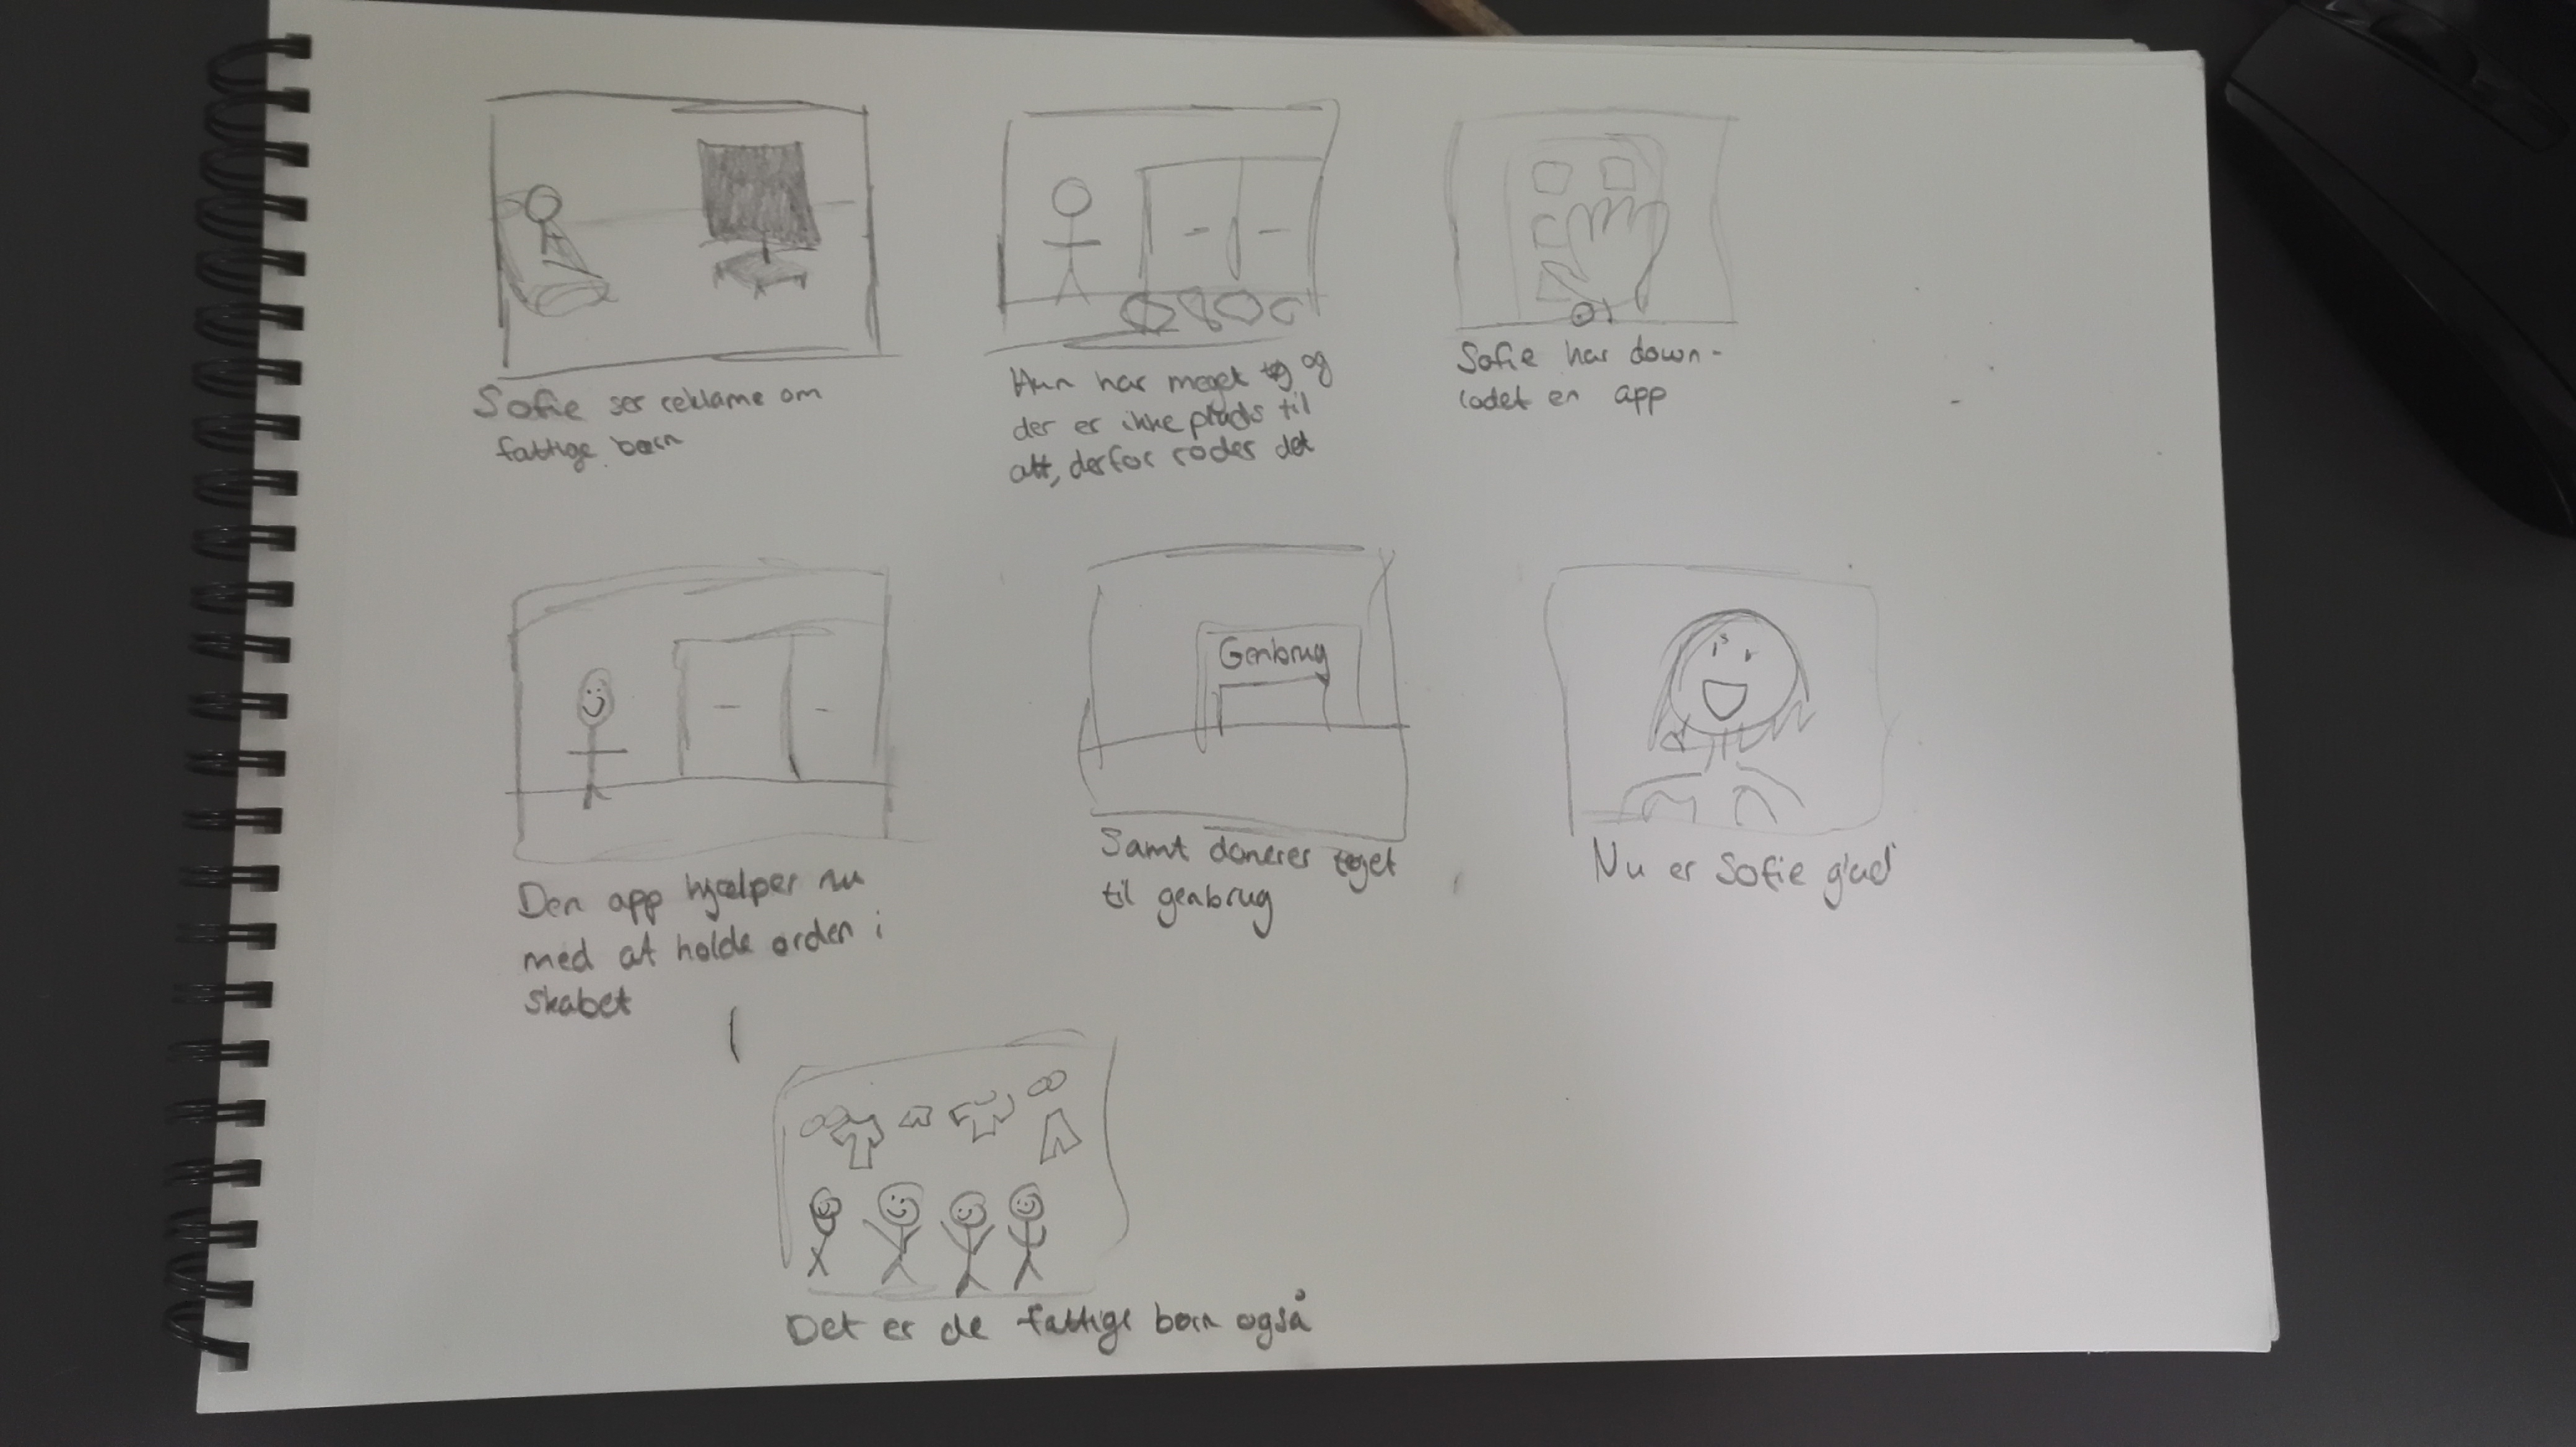 Sofie ser reklame om
fattige børn
Hun har meget tøj og
der er ikke plads til
alt, derfor roder det
Sofie har down-
loadet en app
Den app hjælper nu
med at holde orden i
skabet
Genbrug
Samt donerer tøjet
til genbrug
Nu er Sofie glad
Det er de fattige børn også